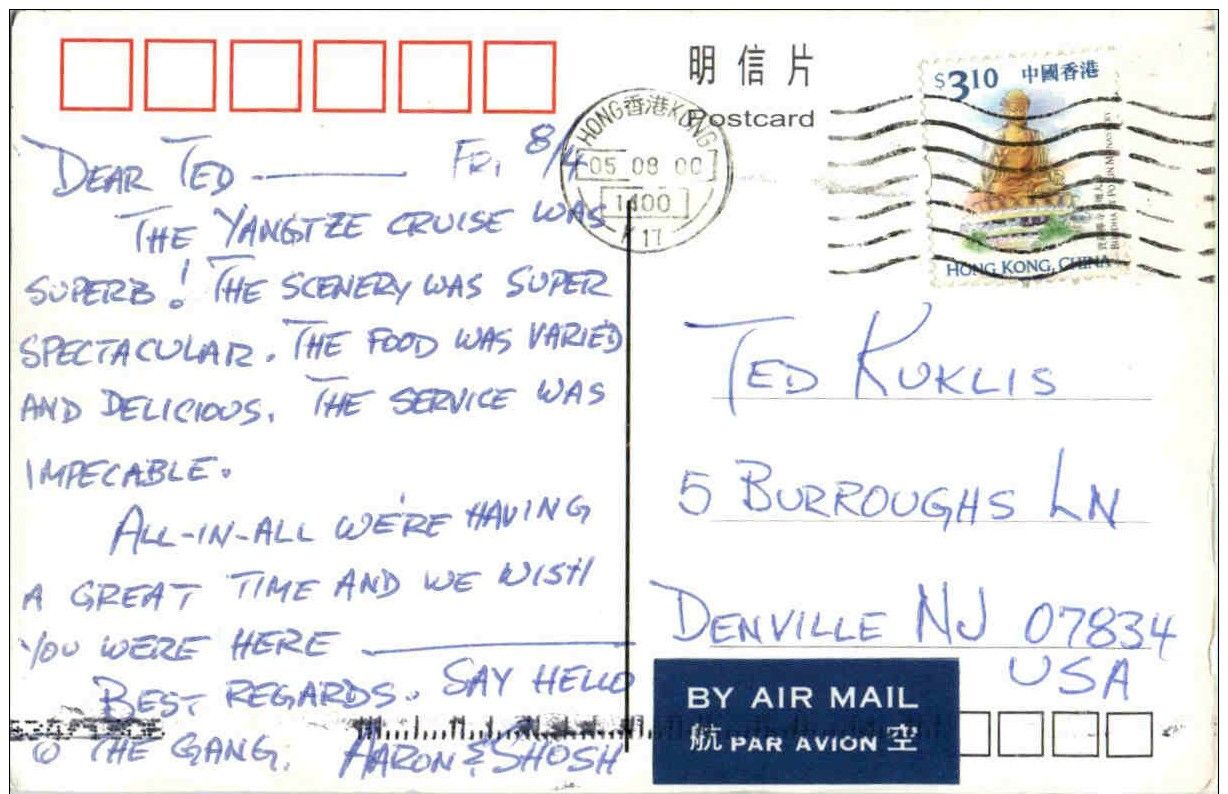 明信片
Postcard
$3.10 中國香港
HONG KONG, CHINA
HONG 香港 KONG
05 08 00
1400
K 11
DEAR TED — FRI 8/4
THE YANGTZE CRUISE WAS
SUPERB! THE SCENERY WAS SUPER
SPECTACULAR. THE FOOD WAS VARIED
AND DELICIOUS. THE SERVICE WAS
IMPECABLE.
ALL-IN-ALL WE'RE HAVING
A GREAT TIME AND WE WISH
YOU WERE HERE —
BEST REGARDS. SAY HELLO
TO THE GANG. AARON & SHOSH
TED KUKLIS
5 BURROUGHS LN
DENVILLE NJ 07834
USA
BY AIR MAIL
航 PAR AVION 空